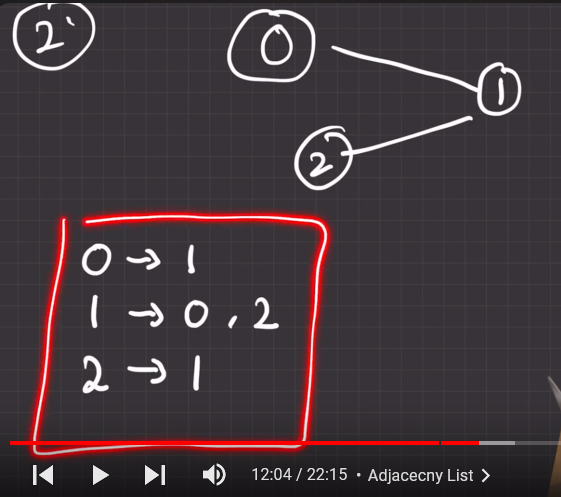 2
0
1
2
0 → 1
1 → 0, 2
2 → 1
12:04 / 22:15 • Adjacecny List >